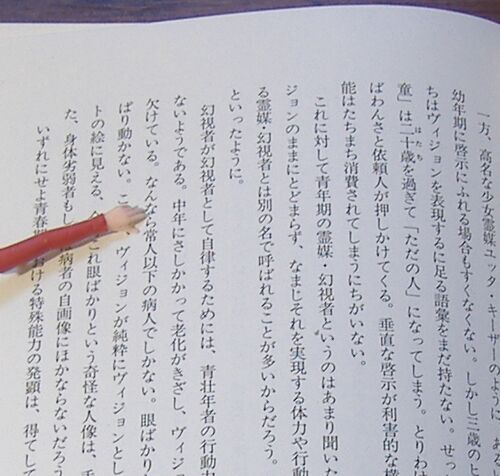 一方、高名な少女霊媒ユック・キーザーのよう
幼年期に啓示にふれる場合もすくなくない。しかし三歳のヒ
ちはヴィジョンを表現するに足る語彙をまだ持たない。せ
童」は二十歳を過ぎて「ただの人」になってしまう。とりわ
はたち
ばわんさと依頼人が押しかけてくる。垂直な啓示が利害的な横
能はたちまち消費されてしまうにちがいない。
これに対して青年期の霊媒・幻視者というのはあまり聞いた
ジョンのままにとどまらず、なまじそれを実現する体力や行動
る霊媒・幻視者とは別の名で呼ばれることが多いからだろう。
といったように。
幻視者が幻視者として自律するためには、青壮年者の行動力
ないようである。中年にさしかかって老化がきざし、ヴィジ
欠けている。なんなら常人以下の病人でしかない。眼ばかり
ばり動かない。こ ヴィジョンが純粋にヴィジョンとし
トの絵に見える、 これ眼ばかりという奇怪な人像は、
た、身体虚弱者もし 病者の自画像にほかならないだろう
いずれにせよ青春 おける特殊能力の発顕は、得てして